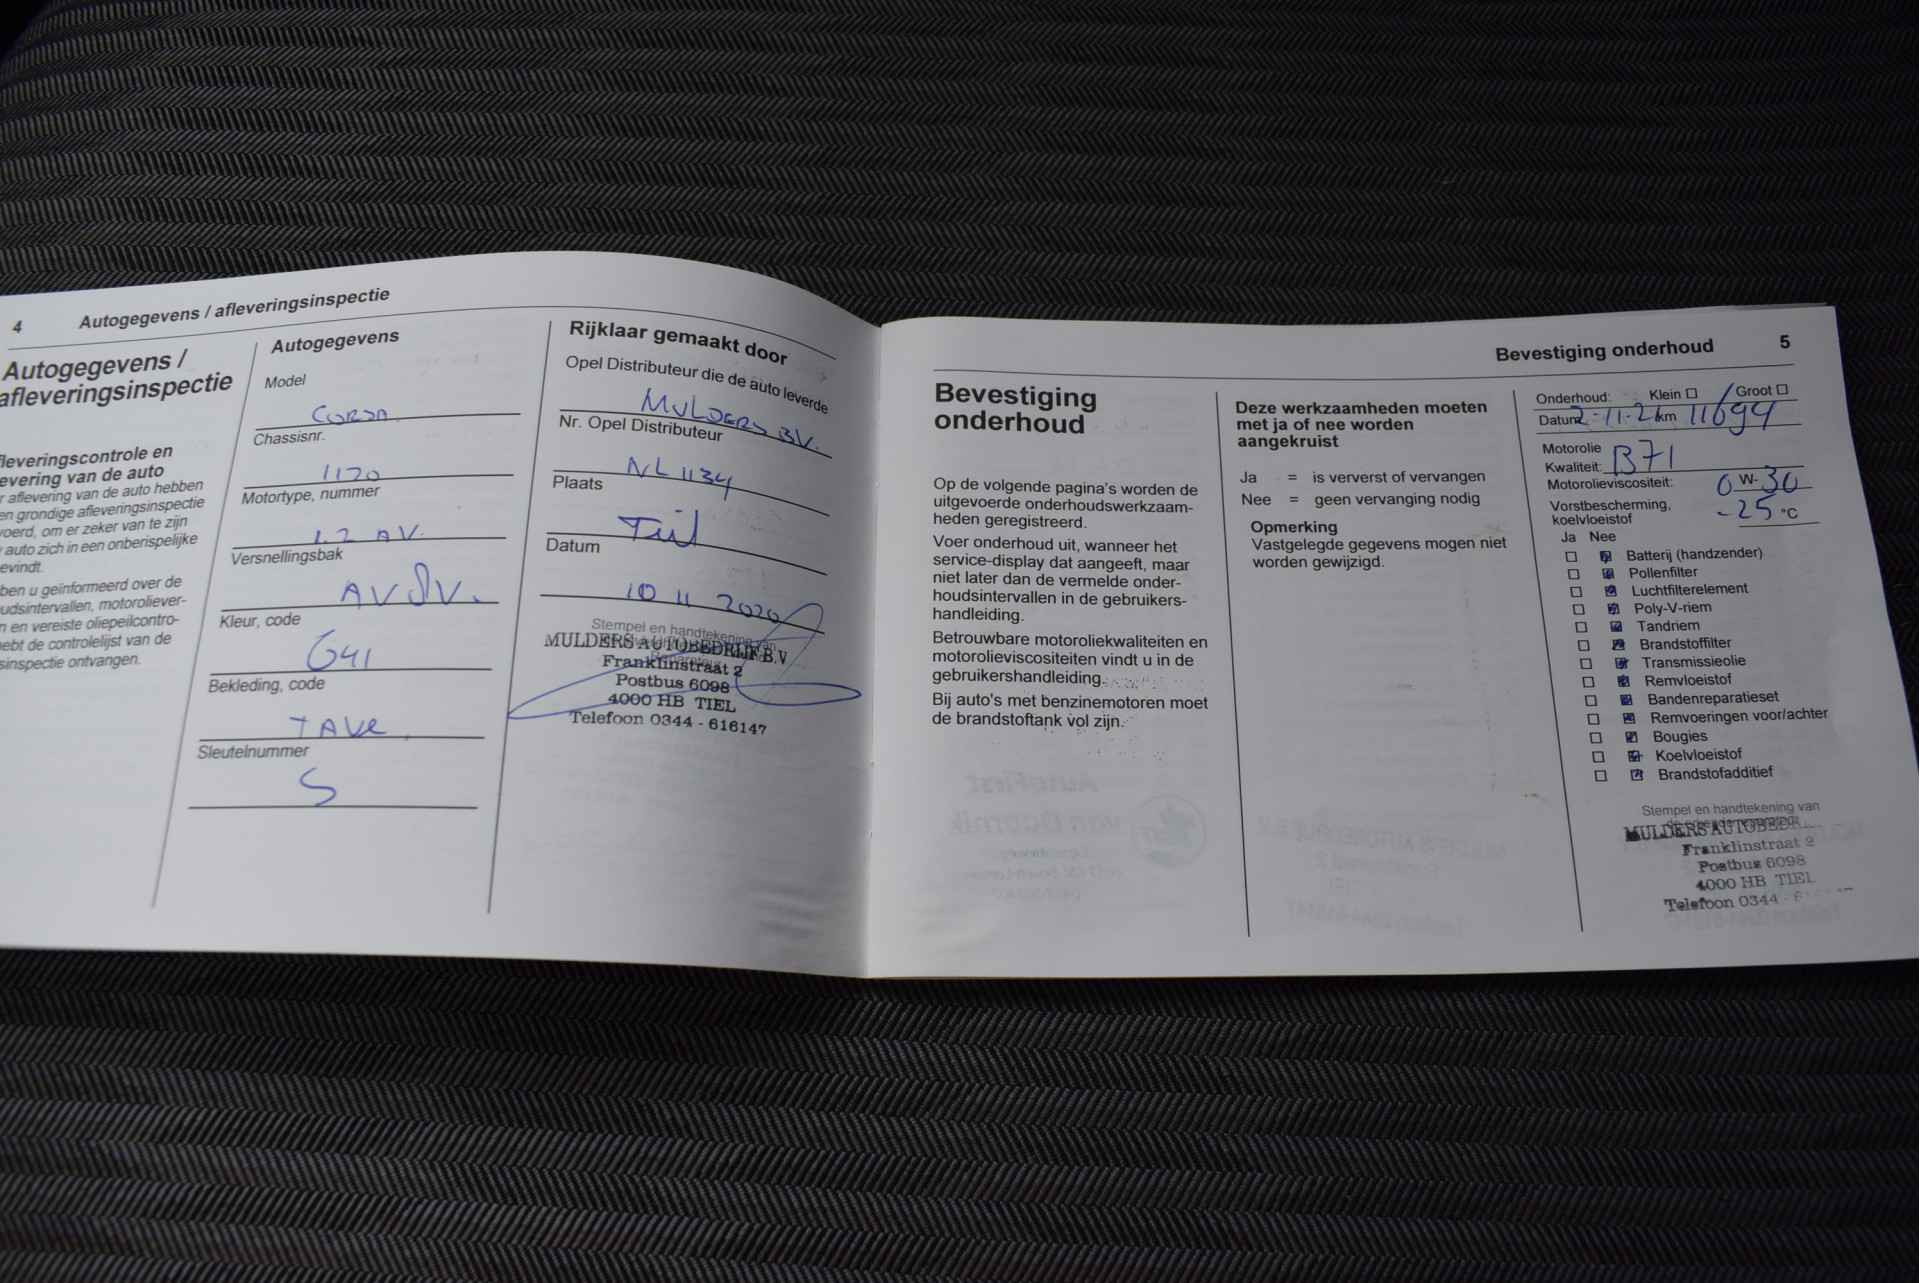 4 Autogegevens / afleveringsinspectie
Autogegevens /
afleveringsinspectie
fleveringscontrole en
evering van de auto
r aflevering van de auto hebben
en grondige afleveringsinspectie
voerd, om er zeker van te zijn
auto zich in een onberispelijke
evindt.
ben u geïnformeerd over de
oudsintervallen, motoroliever-
n en vereiste oliepeilcontro-
ebt de controlelijst van de
sinspectie ontvangen.
Autogegevens
Model
CORSA
Chassisnr.
1120
Motortype, nummer
1.2 AV.
Versnellingsbak
Kleur, code
G41
Bekleding, code
TAVE
Sleutelnummer
S
Rijklaar gemaakt door
Opel Distributeur die de auto leverde
MULDERS BV.
Nr. Opel Distributeur
NL 1134
Plaats
Tiel
Datum
10 11 2020
Stempel en handtekening van
MULDERS AUTOBEDRIJF B.V
Franklinstraat 2
Postbus 6098
4000 HB TIEL
Telefoon 0344 - 616147
Bevestiging onderhoud 5
Bevestiging
onderhoud
Op de volgende pagina's worden de
uitgevoerde onderhoudswerkzaam-
heden geregistreerd.
Voer onderhoud uit, wanneer het
service-display dat aangeeft, maar
niet later dan de vermelde onder-
houdsintervallen in de gebruikers-
handleiding.
Betrouwbare motoroliekwaliteiten en
motorolieviscositeiten vindt u in de
gebruikershandleiding.
Bij auto's met benzinemotoren moet
de brandstoftank vol zijn.
Deze werkzaamheden moeten
met ja of nee worden
aangekruist
Ja = is ververst of vervangen
Nee = geen vervanging nodig
Opmerking
Vastgelegde gegevens mogen niet
worden gewijzigd.
Onderhoud: Klein Groot
Datum 2-11-21 km 11694
Motorolie
Kwaliteit: B71
Motorolieviscositeit: 0 W- 30
Vorstbescherming,
koelvloeistof -25 °C
Ja Nee
Batterij (handzender)
Pollenfilter
Luchtfilterelement
Poly-V-riem
Tandriem
Brandstoffilter
Transmissieolie
Remvloeistof
Bandenreparatieset
Remvoeringen voor/achter
Bougies
Koelvloeistof
Brandstofadditief
Stempel en handtekening van
MULDERS AUTOBEDR
Franklinstraat 2
Postbus 6098
4000 HB TIEL
Telefoon 0344 - 6